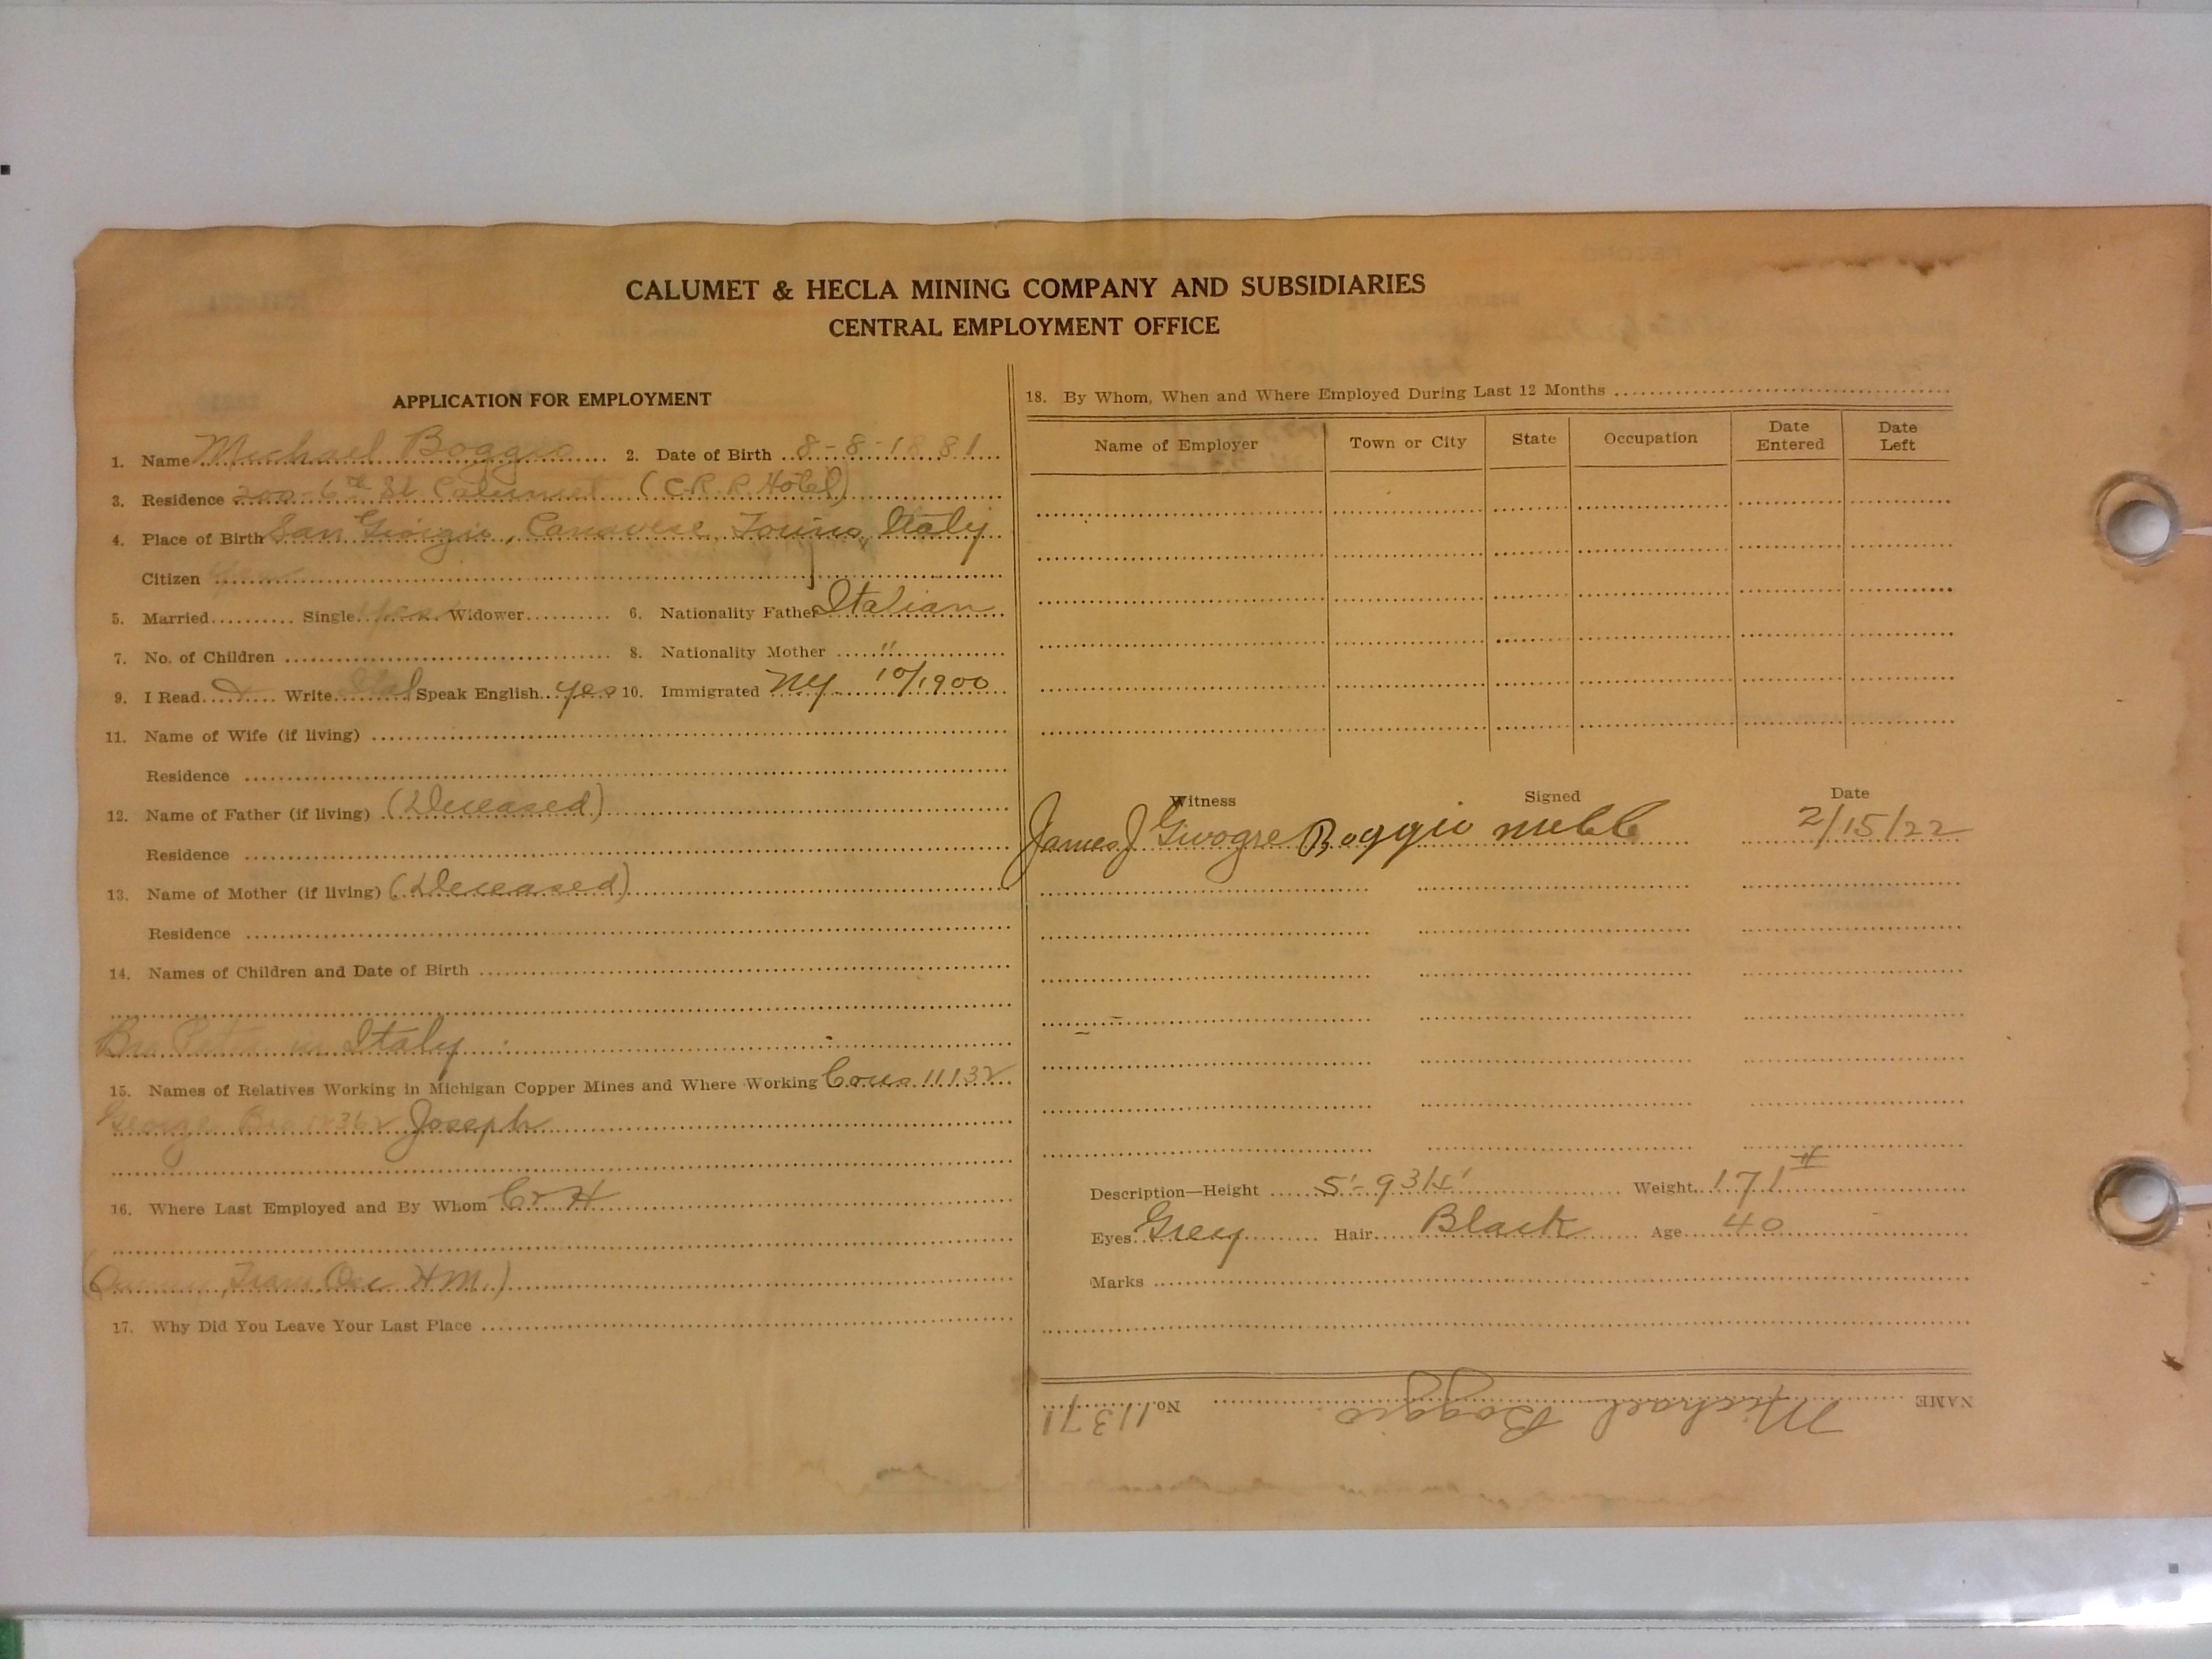 CALUMET & HECLA MINING COMPANY AND SUBSIDIARIES
CENTRAL EMPLOYMENT OFFICE
APPLICATION FOR EMPLOYMENT
1. Name Michael Boggio 2. Date of Birth 8-8-1881
3. Residence 200-6th St Calumet (C.R.R. Hotel)
4. Place of Birth San Giorgio, Canavese Torino, Italy
Citizen
5. Married Single Yes Widower 6. Nationality Father Italian
7. No. of Children 8. Nationality Mother "
9. I Read Write Ital Speak English yes 10. Immigrated NY 10/1900
11. Name of Wife (if living)
Residence
12. Name of Father (if living) (Deceased)
Residence
13. Name of Mother (if living) (Deceased)
Residence
14. Names of Children and Date of Birth
Bro Peter in Italy
15. Names of Relatives Working in Michigan Copper Mines and Where Working Cous 11132
George Bro 12362 Joseph
16. Where Last Employed and By Whom C & H
(Quincy, Tram, Dec H.M.)
17. Why Did You Leave Your Last Place
18. By Whom, When and Where Employed During Last 12 Months
Name of Employer Town or City State Occupation Date Entered Date Left
Witness Signed Date
James J Boggio 2/15/22
Description—Height 5'-9 3/4' Weight 171#
Eyes Grey Hair Black Age 40
Marks
NAME Michael Boggio No. 11371